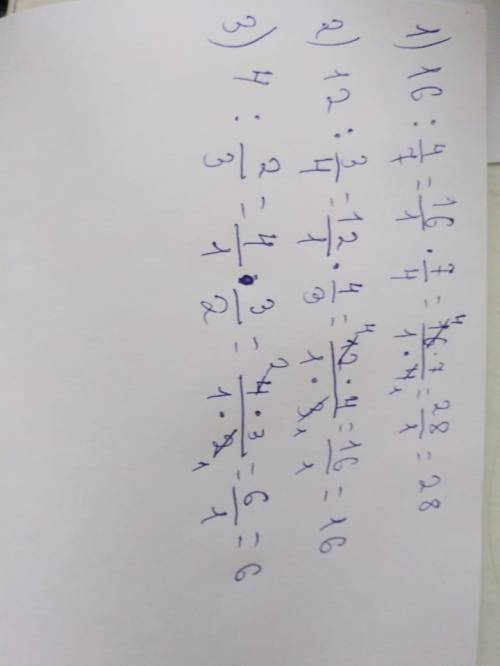 1) 16 : 4/7 = 16/1 · 7/4 = 16·7/1·4 = 28/1 = 28
2) 12 : 3/4 = 12/1 · 4/3 = 12·4/1·3 = 16/1 = 16
3) 4 : 2/3 = 4/1 · 3/2 = 4·3/1·2 = 6/1 = 6